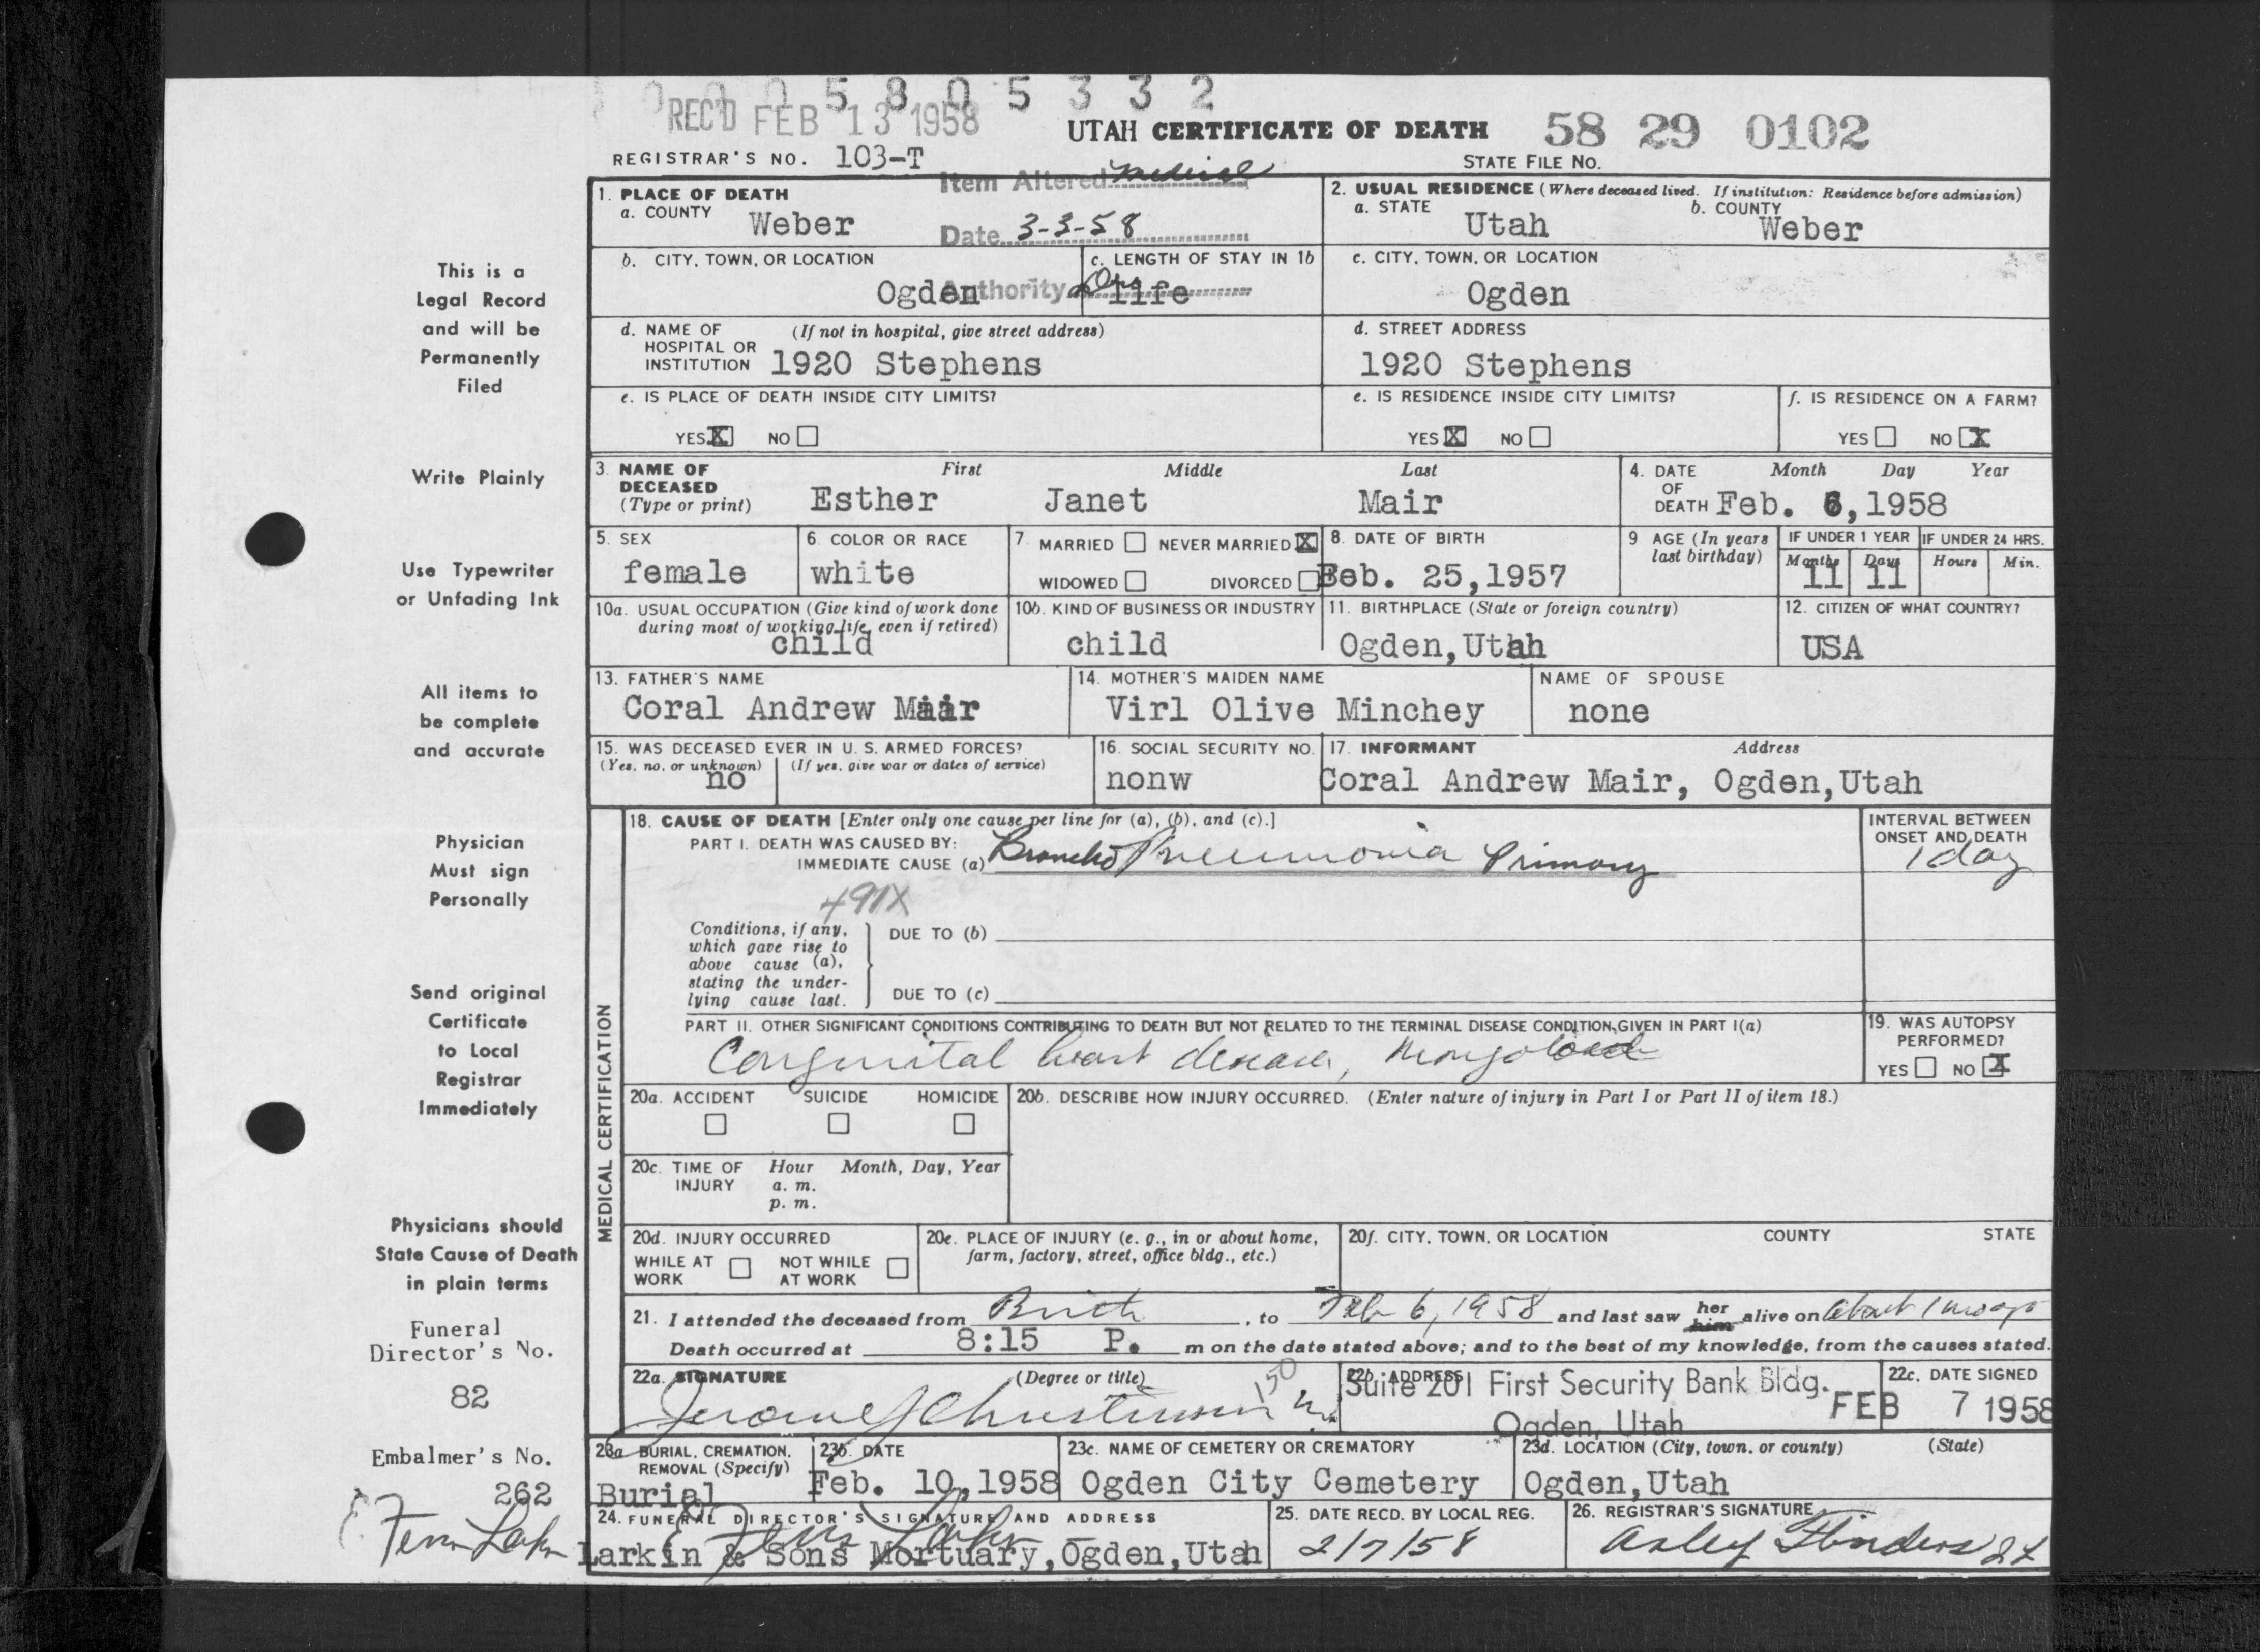 0 0 0 5 8 0 5 3 3 2
REC'D FEB 13 1958
UTAH CERTIFICATE OF DEATH 58 29 0102
REGISTRAR'S NO. 103-T STATE FILE NO.
Item Altered Medical
Date 3-3-58
Authority
1. PLACE OF DEATH
a. COUNTY Weber
2. USUAL RESIDENCE (Where deceased lived. If institution: Residence before admission)
a. STATE Utah b. COUNTY Weber
b. CITY, TOWN, OR LOCATION Ogden
c. LENGTH OF STAY IN 1b life
c. CITY, TOWN, OR LOCATION Ogden
d. NAME OF HOSPITAL OR INSTITUTION (If not in hospital, give street address) 1920 Stephens
d. STREET ADDRESS 1920 Stephens
e. IS PLACE OF DEATH INSIDE CITY LIMITS? YES X NO
e. IS RESIDENCE INSIDE CITY LIMITS? YES X NO
f. IS RESIDENCE ON A FARM? YES NO X
3. NAME OF DECEASED (Type or print) First Middle Last
Esther Janet Mair
4. DATE OF DEATH Month Day Year
Feb. 6, 1958
5. SEX female
6. COLOR OR RACE white
7. MARRIED NEVER MARRIED X
WIDOWED DIVORCED
8. DATE OF BIRTH Feb. 25, 1957
9 AGE (In years last birthday)
IF UNDER 1 YEAR Months 11 Days 11
IF UNDER 24 HRS. Hours Min.
10a. USUAL OCCUPATION (Give kind of work done during most of working life, even if retired) child
10b. KIND OF BUSINESS OR INDUSTRY child
11. BIRTHPLACE (State or foreign country) Ogden, Utah
12. CITIZEN OF WHAT COUNTRY? USA
13. FATHER'S NAME Coral Andrew Mair
14. MOTHER'S MAIDEN NAME Virl Olive Minchey
NAME OF SPOUSE none
15. WAS DECEASED EVER IN U. S. ARMED FORCES?
(Yes, no, or unknown) no (If yes, give war or dates of service)
16. SOCIAL SECURITY NO. nonw
17. INFORMANT Address
Coral Andrew Mair, Ogden, Utah
MEDICAL CERTIFICATION
18. CAUSE OF DEATH [Enter only one cause per line for (a), (b), and (c).]
PART I. DEATH WAS CAUSED BY:
IMMEDIATE CAUSE (a) Broncho Pneumonia Primary
INTERVAL BETWEEN ONSET AND DEATH
1 day
491X
Conditions, if any, which gave rise to above cause (a), stating the underlying cause last.
DUE TO (b)
DUE TO (c)
PART II. OTHER SIGNIFICANT CONDITIONS CONTRIBUTING TO DEATH BUT NOT RELATED TO THE TERMINAL DISEASE CONDITION GIVEN IN PART I(a)
Congenital heart disease, Mongoloid
19. WAS AUTOPSY PERFORMED?
YES NO X
20a. ACCIDENT SUICIDE HOMICIDE
20b. DESCRIBE HOW INJURY OCCURRED. (Enter nature of injury in Part I or Part II of item 18.)
20c. TIME OF INJURY Hour Month, Day, Year
a. m.
p. m.
20d. INJURY OCCURRED
WHILE AT WORK NOT WHILE AT WORK
20e. PLACE OF INJURY (e. g., in or about home, farm, factory, street, office bldg., etc.)
20f. CITY, TOWN, OR LOCATION COUNTY STATE
21. I attended the deceased from Birth, to Feb 6, 1958 and last saw her him alive on about 1 mo ago
Death occurred at 8:15 P. m on the date stated above; and to the best of my knowledge, from the causes stated.
22a. SIGNATURE (Degree or title)
150
22b. ADDRESS
Suite 201 First Security Bank Bldg.
Ogden, Utah
22c. DATE SIGNED
FEB 7 1958
23a BURIAL, CREMATION, REMOVAL (Specify) Burial
23b. DATE Feb. 10, 1958
23c. NAME OF CEMETERY OR CREMATORY Ogden City Cemetery
23d. LOCATION (City, town, or county) (State)
Ogden, Utah
24. FUNERAL DIRECTOR'S SIGNATURE AND ADDRESS
Larkin & Sons Mortuary, Ogden, Utah
25. DATE RECD. BY LOCAL REG.
2/7/58
26. REGISTRAR'S SIGNATURE
This is a
Legal Record
and will be
Permanently
Filed
Write Plainly
Use Typewriter
or Unfading Ink
All items to
be complete
and accurate
Physician
Must sign
Personally
Send original
Certificate
to Local
Registrar
Immediately
Physicians should
State Cause of Death
in plain terms
Funeral
Director's No.
82
Embalmer's No.
262